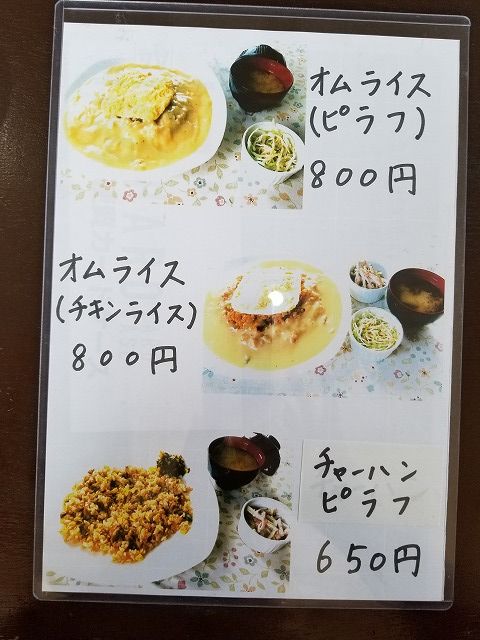 オムライス
(ピラフ)
800円
オムライス
(チキンライス)
800円
チャーハン
ピラフ
650円